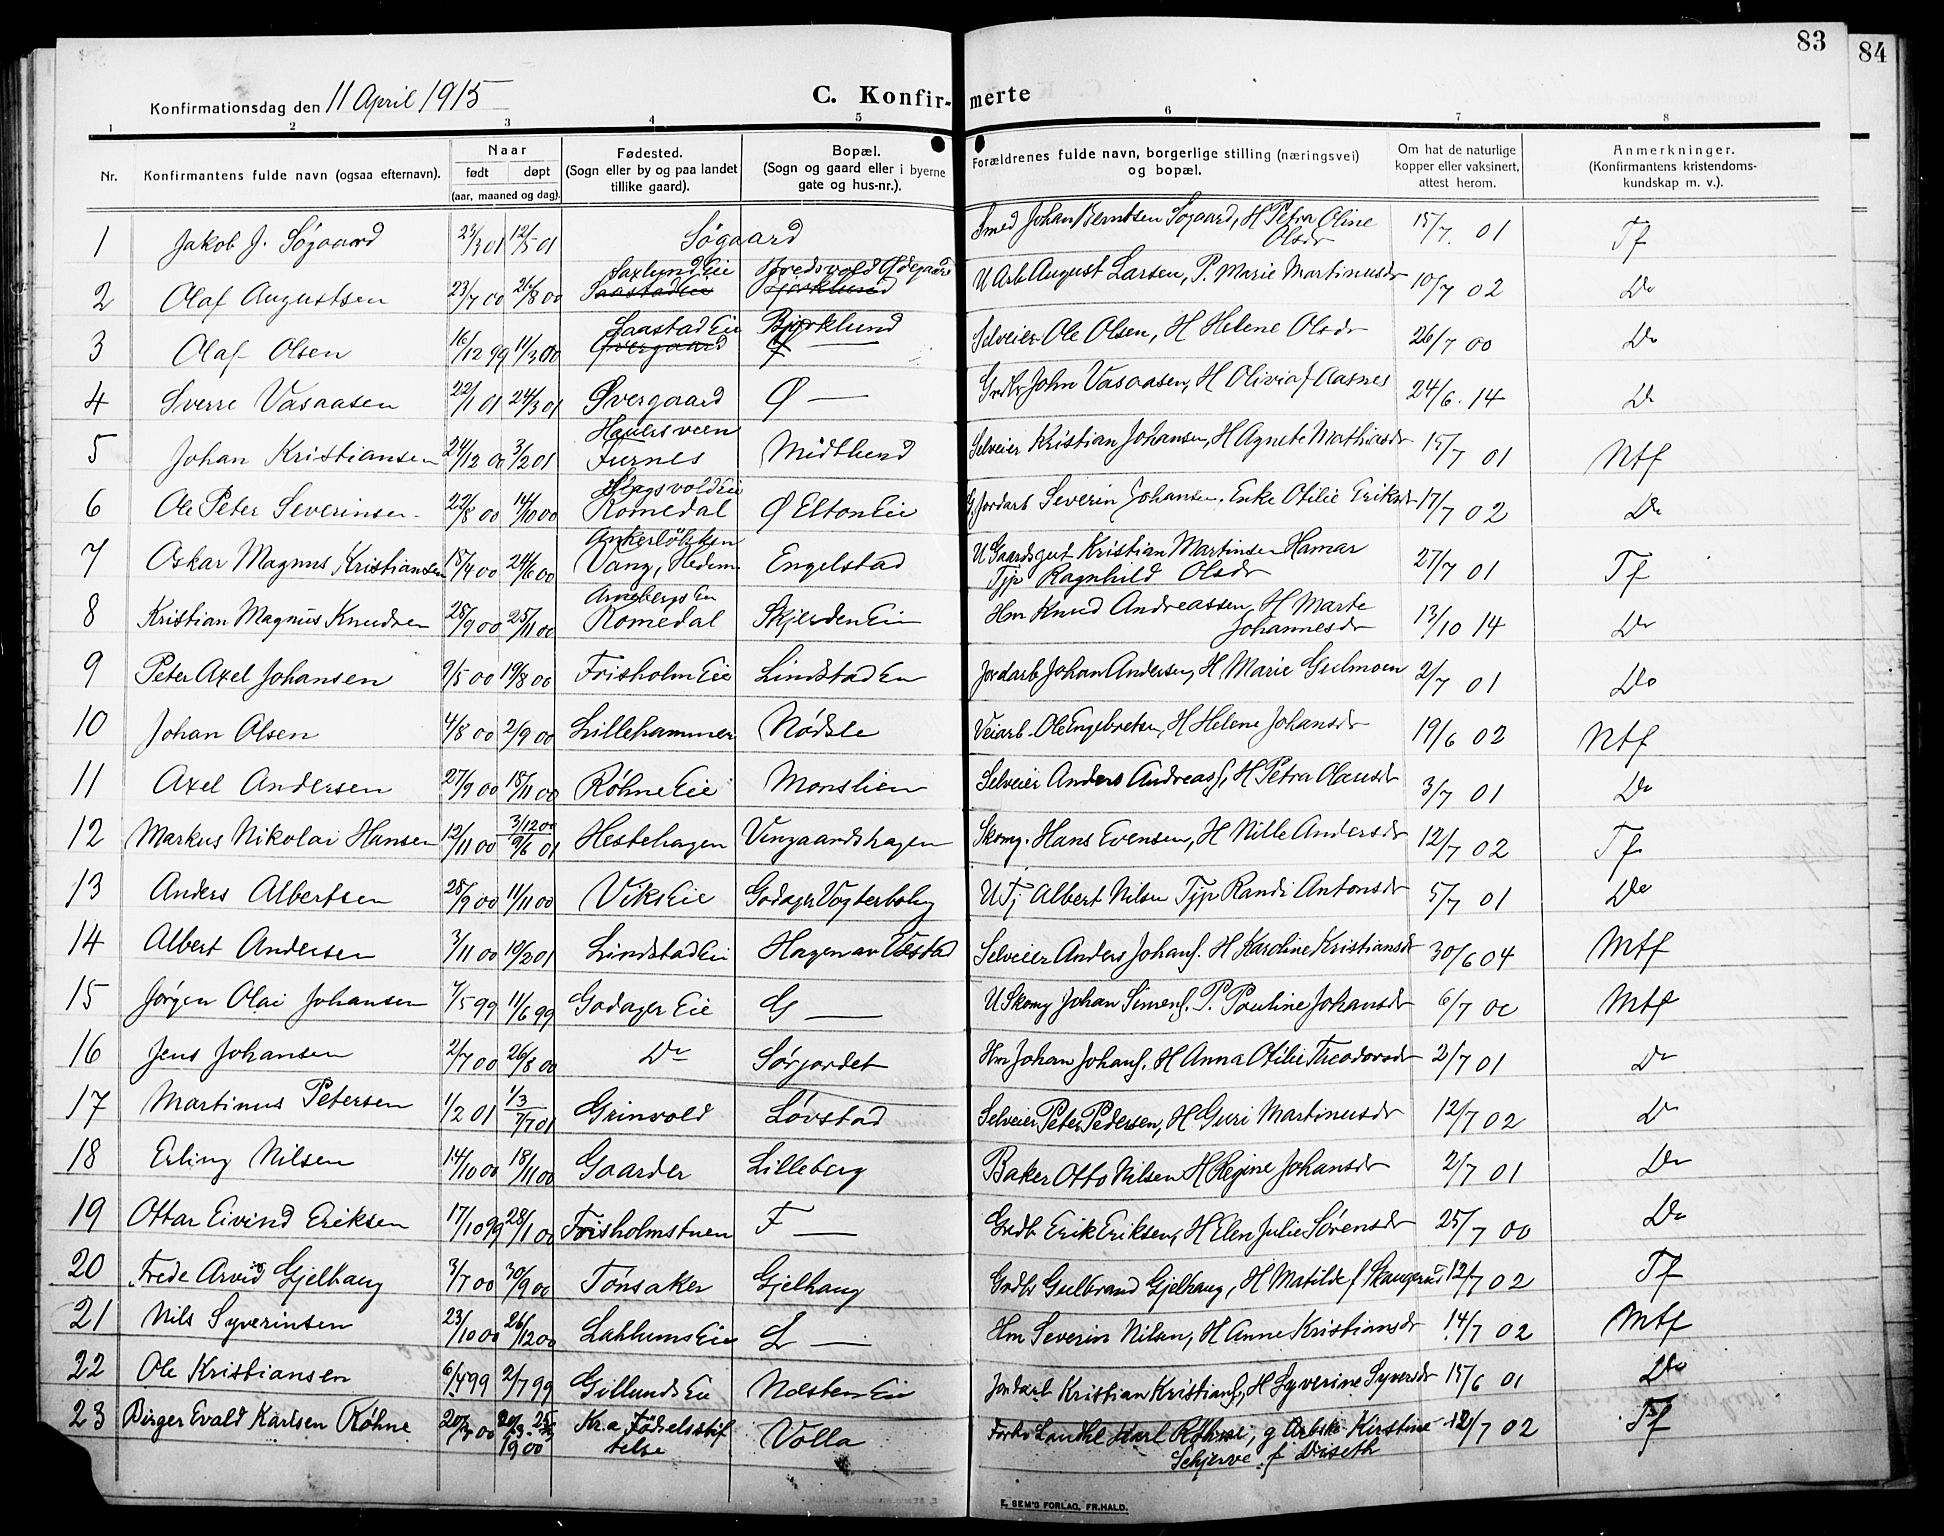 83
84
Konfirmationsdag den 11 April 1915
C. Konfir- merte
1 2 3 4 5 6 7 8
Nr. Konfirmantens fulde navn (ogsaa efternavn). Naar født døpt (aar, maaned og dag). Fødested. (Sogn eller by og paa landet tillike gaard). Bopæl. (Sogn og gaard eller i byerne gate og hus-nr.). Forældrenes fulde navn, borgerlige stilling (næringsvei) og bopæl. Om hat de naturlige kopper eller vaksinert, attest herom. Anmerkninger. (Konfirmantens kristendoms- kundskap m. v.).
1 Jakob J. Søgaard 23/3 01 12/5 01 Søgaard Smed Johan Berntsen Søgaard, H Petra Oline Olsdr 15/7. 01 Tf
2 Olaf Augustsen 23/7 00 26/8 00 Saxlund Eie Saastad Eie Bredsvold Ødegaard Bjørklund U Arb August Larsen, P. Marie Martinusdr 10/7 02 Do
3 Olaf Olsen 16/12 99 11/3 00 Saastad Eie Øvergaard Bjørklund Ø — Selveier Ole Olsen, H Helene Olsdr 26/7 00 Do
4 Sverre Vasaasen 22/1 01 24/3 01 Øvergaard Ø — Grdbr John Vasaasen, H Olivia f Aasnes 24/6. 14 Do
5 Johan Kristiansen 24/12 00 3/2 01 Furnes Midtlund Selveier Kristian Johansen, H Agnete Mathiasdr 15/7 01 Mtf
6 Ole Peter Severinsen 22/8 00 14/10 00 Romedal Ø Elton Eie G Jordarb Severin Johansen, Enke Otilie Eriksdr 17/7 02 Do
7 Oskar Magnus Kristiansen 15/4 00 24/6 00 Ankerløkken Vang, Hedem Engelstad U Gaardsgut Kristian Martinsen Hamar Tjp Ragnhild Olsdr 27/7 01 Tf
8 Kristian Magnus Knudsen 28/9 00 25/11 00 Arneberg Eie Romedal Skjerden Eie Hm Knud Andreassen, H Marte Johannesdr 13/10 14 Do
9 Peter Axel Johansen 9/5 00 19/8 00 Frisholm Eie Lindstad Eie Jordarb Johan Andersen, H Marie Gulmoen 2/7 01 Do
10 Johan Olsen 4/8 00 2/9 00 Lillehammer Nødsle Veiarb. Ole Engebretsen, H Helene Johansdr 19/6 02 Mtf
11 Axel Andersen 27/9 00 18/11 00 Røhne Eie Monslien Selveier Anders Andreasf, H Petra Olausdr 3/7 01 Do
12 Markus Nikolai Hansen 12/11 00 3/12 00 9/6 01 Hestehagen Vingaardshagen Skomg. Hans Evensen, H Nille Andersdr 12/7 02 Tf
13 Anders Albertsen 28/9 00 11/11 00 Viks Eie Godager Vogterbolig U Tj Albert Nilsen Tjp Randi Antonsdr 5/7 01 Do
14 Albert Andersen 3/11 00 10/2 01 Lindstad Eie Hagen av Vestad Selveier Anders Johansf. H Karoline Kristiansdr 30/6 04 Mtf
15 Jørgen Olai Johansen 7/5 99 11/6 99 Godager Eie G — U Skomg Johan Simensf. P. Pauline Johansdr 6/7 00 Mtf
16 Jens Johansen 2/7 00 26/8 00 Do Sørjordet Hm Johan Johansf. H Anna Otilie Theodorsdr 2/7 01 Do
17 Martinus Petersen 1/2 01 1/3 7/7 01 Grinvold Løvstad Selveier Peter Pedersen, H Guri Martinusdr 12/7 02 Do
18 Erling Nilsen 14/10 00 18/11 00 Gaarder Lilleberg Baker Otto Nilsen H Regine Johansdr 2/7 01 Do
19 Ottar Eivind Eriksen 17/10 99 28/1 00 Frisholmstuen F — Grdb Erik Eriksen, H Elen Julie Sørensdr 25/7 00 Do
20 Frede Arvid Gjelhaug 3/7 00 30/9 00 Tønsaker Gjelhaug Grdbr Gulbrand Gjelhaug, H Matilde f Skaugerud 12/7 02 Tf
21 Nils Syverinsen 23/10 00 26/12 00 Lakhums Eie L — Hm Severin Nilsen, H Anne Kristiansdr 14/7 02 Mtf
22 Ole Kristiansen 6/4 99 2/7 99 Gillunds Eie Næsten Eie Jordarb Kristian Kristiansf, H Syverine Syversdr 15/6 01 Do
23 Birger Evald Karlsen Røhne 20/3 00 1900 Kr.a Fødselsstiftelse Volla Forhv Landhl Karl Røhne, g Arbske Kirstine Schjerve f Diseth 12/7 02 Tf
E. SEM'S FORLAG, FR.HALD.